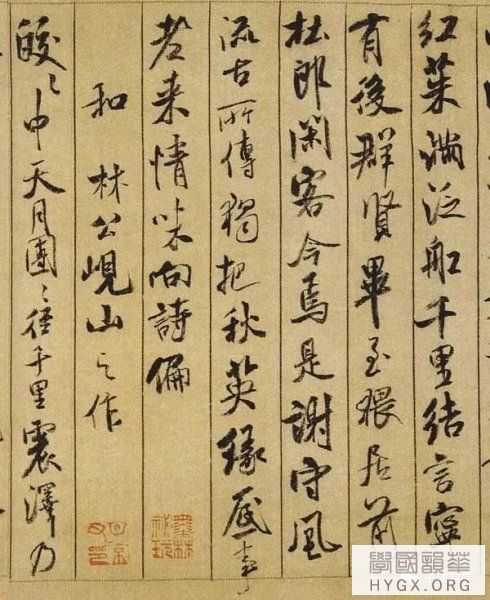 紅茱滿泛船千里結言寧
有後群賢畢至猥居前
杜郎閑客今焉是謝守風
流古所傳獨把秋英緣底事
老來情味向詩偏
和林公峴山之作
皎〻中天月團〻徑千里震澤乃
墨林秘玩
華韻國學
HYGX.ORG